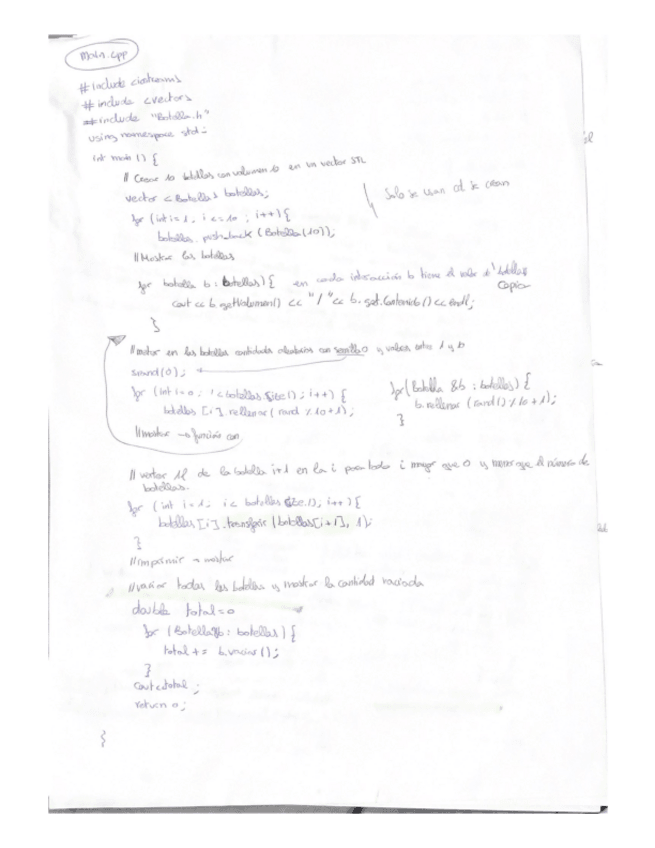 main.cpp
#include <iostream>
#include <vector>
#include "Botella.h"
using namespace std;
int main () {
// Crear 10 botellas con volumen 10 en un vector STL
vector <Botella> botellas;
Solo se usan al se crean
for (int i=1; i<=10; i++) {
botellas.push_back (Botella(10));
// Mostrar las botellas
for botella b: botellas) { en cada interacción b tiene el valor de botellas
copia
cout << b.getVolumen() << "/" << b.getContenido() << endl;
}
// meter en las botellas cantidades aleatorias con semilla 0 y valores entre 1 y 10
srand(0);
for (int i=0; i<botellas.size(); i++) {
botellas [i].rellenar (rand % 10+1);
for (Botella &b : botellas) {
b.rellenar (rand() % 10+1);
}
// mostrar → función con
// verter 1l de la botella i+1 en la i para todo i mayor que 0 y menor que el número de
botellas.
for (int i=1; i< botellas.size(); i++) {
botellas [i].transferir (botellas[i+1], 1);
}
// imprimir → mostrar
// vaciar todas las botellas y mostrar la cantidad vaciada
double total=0
for (Botella&b: botellas) {
total += b.vaciar();
}
cout<total;
return 0;
}